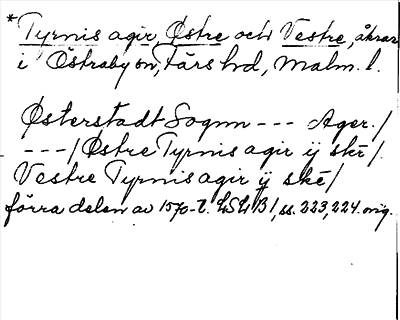 *Tyrnis agir, Østre och Vestre, åkrar
i Östraby sn, Färs hd, Malm. l.
Østerstadt Sognn --- Ager./
---/ Østre Tyrnis agir ij skē/.
Vestre Tyrnis agir ij skē/
förra delen av 1570-t. LSLB 1, ss. 223, 224. orig.